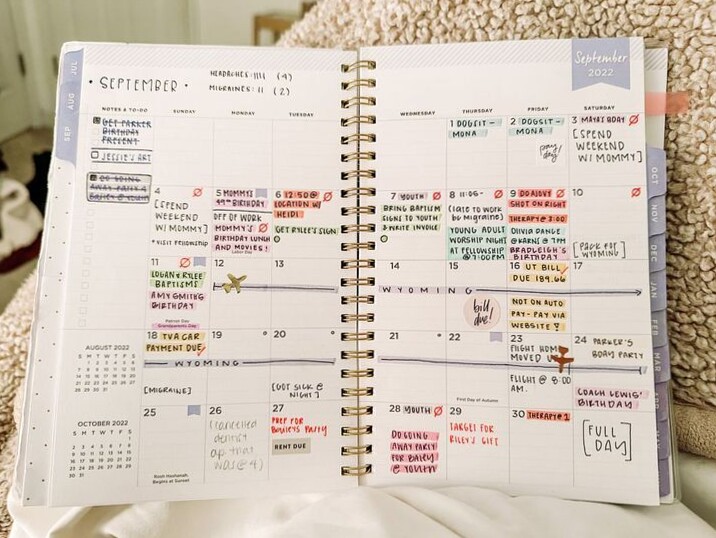 JUL
AUG
SEP
• SEPTEMBER •
HEADACHES: IIII (4)
MIGRAINES: II (2)
September
2022
NOTES & TO-DO
SUNDAY
MONDAY
TUESDAY
WEDNESDAY
THURSDAY
FRIDAY
SATURDAY
GET PARKER
BIRTHDAY
PRESENT
JESSIE'S ART
DO GOING
AWAY PARTY 4
BAILEY @ YOUTH
1 DOGSIT -
MONA
2 DOGSIT -
MONA
pay
day!
3 MAYA'S BDAY
[SPEND
WEEKEND
W/ MOMMY]
4
[SPEND
WEEKEND
W/ MOMMY]
* VISIT FELLOWSHIP
5 MOMMY'S
49TH BIRTHDAY
OFF OF WORK
MOMMY'S
BIRTHDAY LUNCH
AND MOVIES!
Labor Day
6 12:50 @
LOCATION W/
HEIDI
GET RYLEE'S SIGN
7 YOUTH
BRING BAPTISM
SIGNS TO YOUTH
& WRITE INVOICE
8 11:06-
(LATE TO WORK
bc Migraine)
YOUNG ADULT
WORSHIP NIGHT
AT FELLOWSHIP
@ 7:00PM
9 DO AJOVY
SHOT ON RIGHT
THERAPY @ 3:00
OLIVIA DANCE
@ KARNS @ 7PM
BRADLEIGH'S
BIRTHDAY
10
[PACK FOR
WYOMING]
11
LOGAN & RYLEE
BAPTISMS
AMY SMITH'S
BIRTHDAY
Patriot Day
Grandparents Day
12
13
14
15
WYOMING
bill
due!
16 UT BILL
DUE 189.66
NOT ON AUTO
PAY- PAY VIA
WEBSITE!
17
AUGUST 2022
S M T W T F S
18 TVA CAR
PAYMENT DUE
WYOMING
[MIGRAINE]
19
20
[GOT SICK @
NIGHT]
21
22
First Day of Autumn
23
FLIGHT HOME
MOVED UP
FLIGHT @ 8:00
AM.
24 PARKER'S
BDAY PARTY
COACH LEWIS'
BIRTHDAY
OCTOBER 2022
S M T W T F S
25
Rosh Hashanah
Begins at Sunset
26
(cancelled
dentist
ap that
was @ 4)
27
PREP FOR
Baileys Party
RENT DUE
28 YOUTH
DO GOING
AWAY PARTY
FOR BAILEY
@ YOUTH
29
TARGET FOR
RILEY'S GIFT
30 THERAPY @ 1
[FULL
DAY]
OCT
NOV
DEC
JAN
FEB
MAR